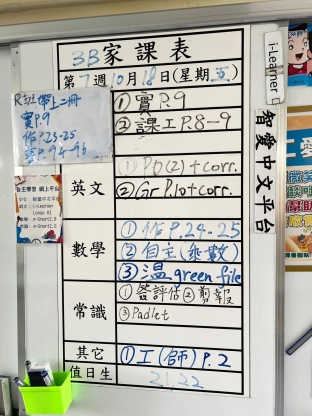 3B家課表
第7週10月18日(星期五)
①實P.9
②課工P.8-9
英文
①Pb(2)+corr.
②Gr P.10+corr.
數學
①作P.24-25
②自主(乘數)
③温green file
常識
①簽評估②剪報
③Padlet
其它
①工(師)P.2
值日生
21,22
i-Learner
智愛中文平台
帶上二冊
實P.9
自主學習 網上平台